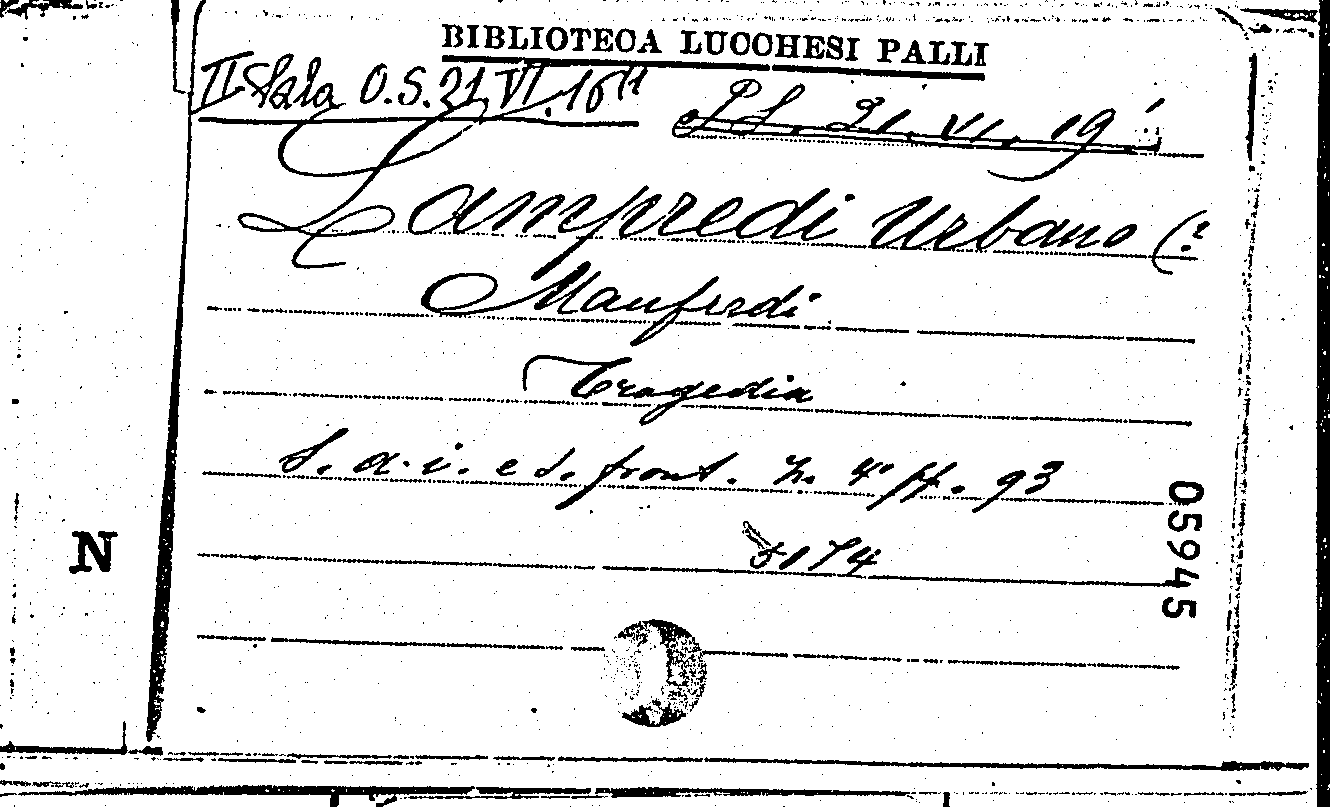 BIBLIOTECA LUCCHESI PALLI
II Sala O.S. 21. VI. 16
21. VI. 19
Lampredi Urbano (?
Manfredi
Tragedia
S. a. i. e s. front. 4° pp. 93
5174
05945
N